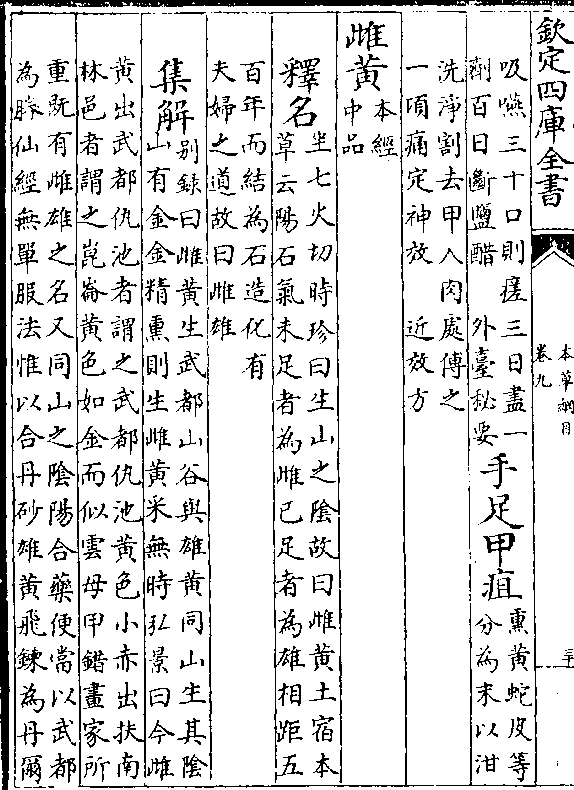 欽定四庫全書
本草綱目
卷九
三十
吸嚥三十口則瘥三日盡一
劑百日斷鹽醋 外臺秘要
手足甲疽
熏黄蛇皮等
分為末以泔
洗淨割去甲入肉處傅之
一頃痛定神效 近效方
雌黄
本經
中品
釋名
坐七火切時珍曰生山之陰故曰雌黄土宿本
草云陽石氣未足者為雌已足者為雄相距五
百年而結為石造化有
夫婦之道故曰雌雄
集解
别錄曰雌黄生武都山谷與雄黄同山生其陰
山有金金精熏則生雌黄采無時弘景曰今雌
黄出武都仇池者謂之武都仇池黄色小赤出扶南
林邑者謂之崑崙黄色如金而似雲母甲錯畫家所
重既有雌雄之名又同山之陰陽合藥便當以武都
為勝仙經無單服法惟以合丹砂雄黄飛鍊為丹爾